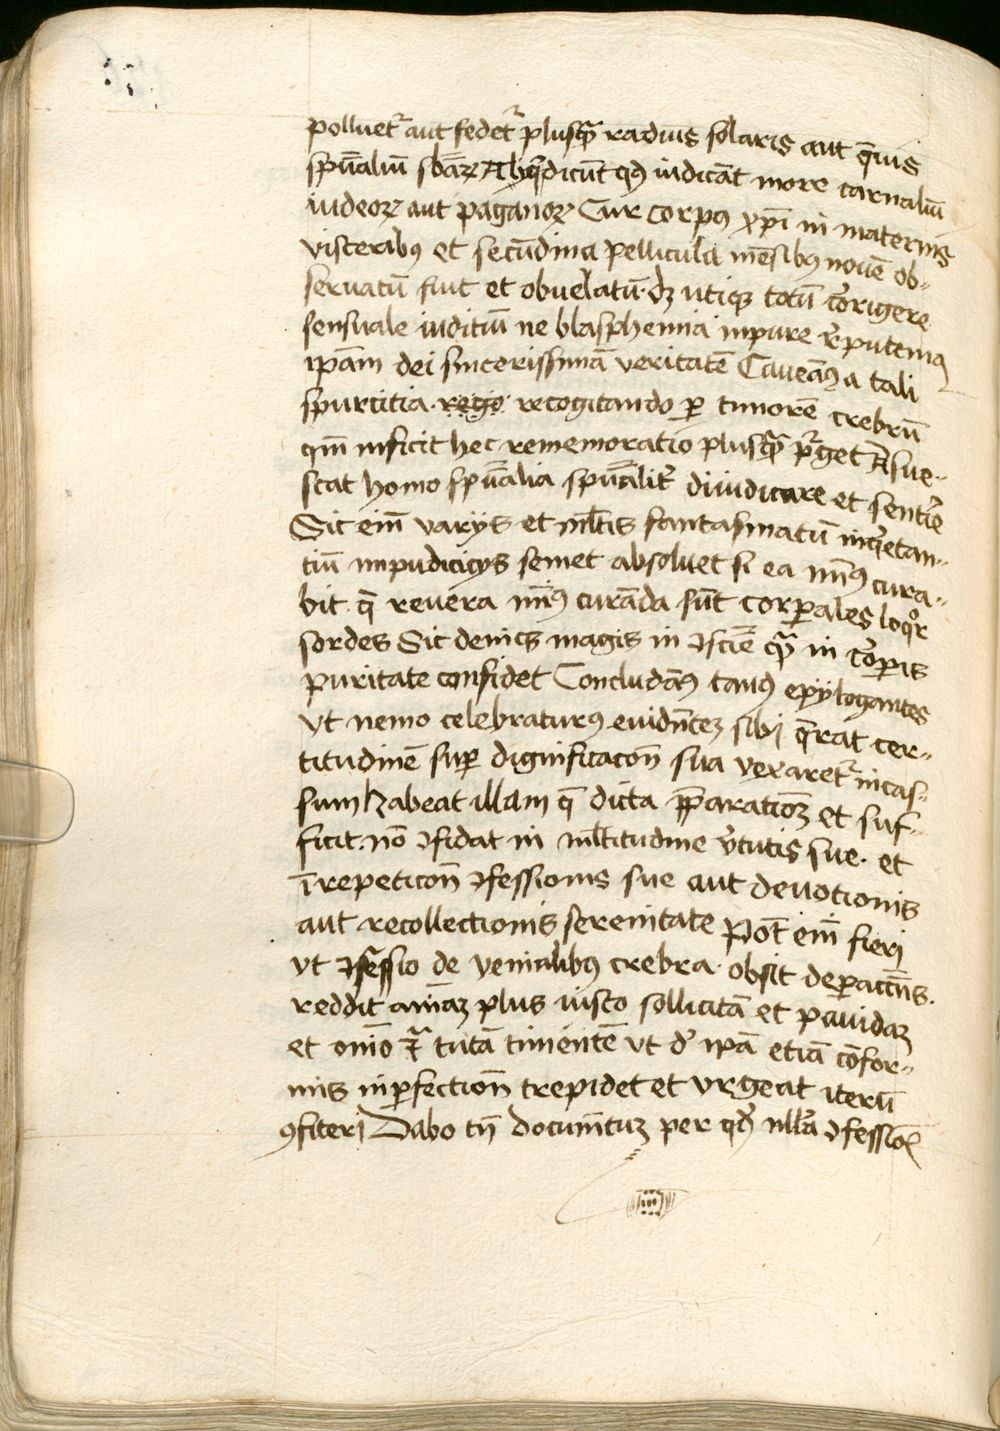 polluet᷑ aut fedet᷑ plusq̄ radius solaris aut q̄uis
sp̄ualiū sb̄aꝝ Alij q̄ dicūt qđ iudicāt more carnaliū
iudeoꝝ aut paganoꝝ Cur corpꝰ xp̄i in maternis
visceribꝰ et secūdina pellicula mēsibꝰ nouē ob-
seruatū fuit et obuelatū. dꝫ utiqꝫ totū corrigere
sensuale iuditiū ne blasphemia inpure reputemꝰ
ip̄am dei sincerissimā veritatē Caueamꝰ a tali
spurcitia. rego recogitando ꝑ timorē crebrū
qm̄ inficit hec rememoratio plusq̄ purget Assue-
scat homo sp̄ualia sp̄ualit᷑ diiudicare et sentire
Sic eīm varijs et ml̄tis fantasmatū inqͥetan-
tiū impudicicijs semet absoluet si ea minꝰ cura-
bit q̄ reuera minꝰ curāda sūt corꝑales loqͦr
sordes Sic deniqꝫ magis in ꝯsciē q̄ in corꝑis
puritate confidet Concludamꝰ tandē epylogantes
Vt nemo celebraturꝰ euidn̄tem sibi q̄rat cer-
titudinē suꝑ dignificacōn sua vexaret᷑ incas-
sum habeat illam q̄ dicta p̄paratiōꝫ et suf-
ficit. nō ꝯfidat in ml̄titudine v᷑tutis sue. et
ī repeticōn ꝯfessionis sue aut deuotionis
aut recollectionis serenitate Pōt eīm fieri
vt ꝯfessio de venialibꝰ crebra. obsit deꝑ accn̄s.
reddit aīaꝫ plus iusto sollicitā et pauidaꝫ
et om̄io ꝯtͣ tutā timentē vt đ ip̄a etiā cōfor-
mis inꝑfection trepidet et vrgeat iterū
ꝯfiteri Dabo tn̄ documn̄tuꝫ per qđ nullā ꝯfessiōē